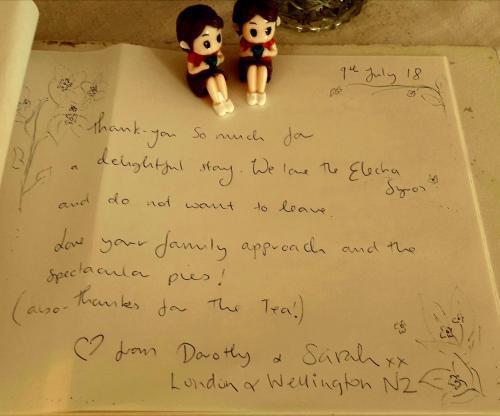 9th July 18
Thank-you so much for
a delightful stay. We love the Electra
Syros
and do not want to leave.
Love your family approach and the
spectacular pies!
(also-thanks for The Tea!)
♡ from Dorothy & Sarah xx
London & Wellington NZ